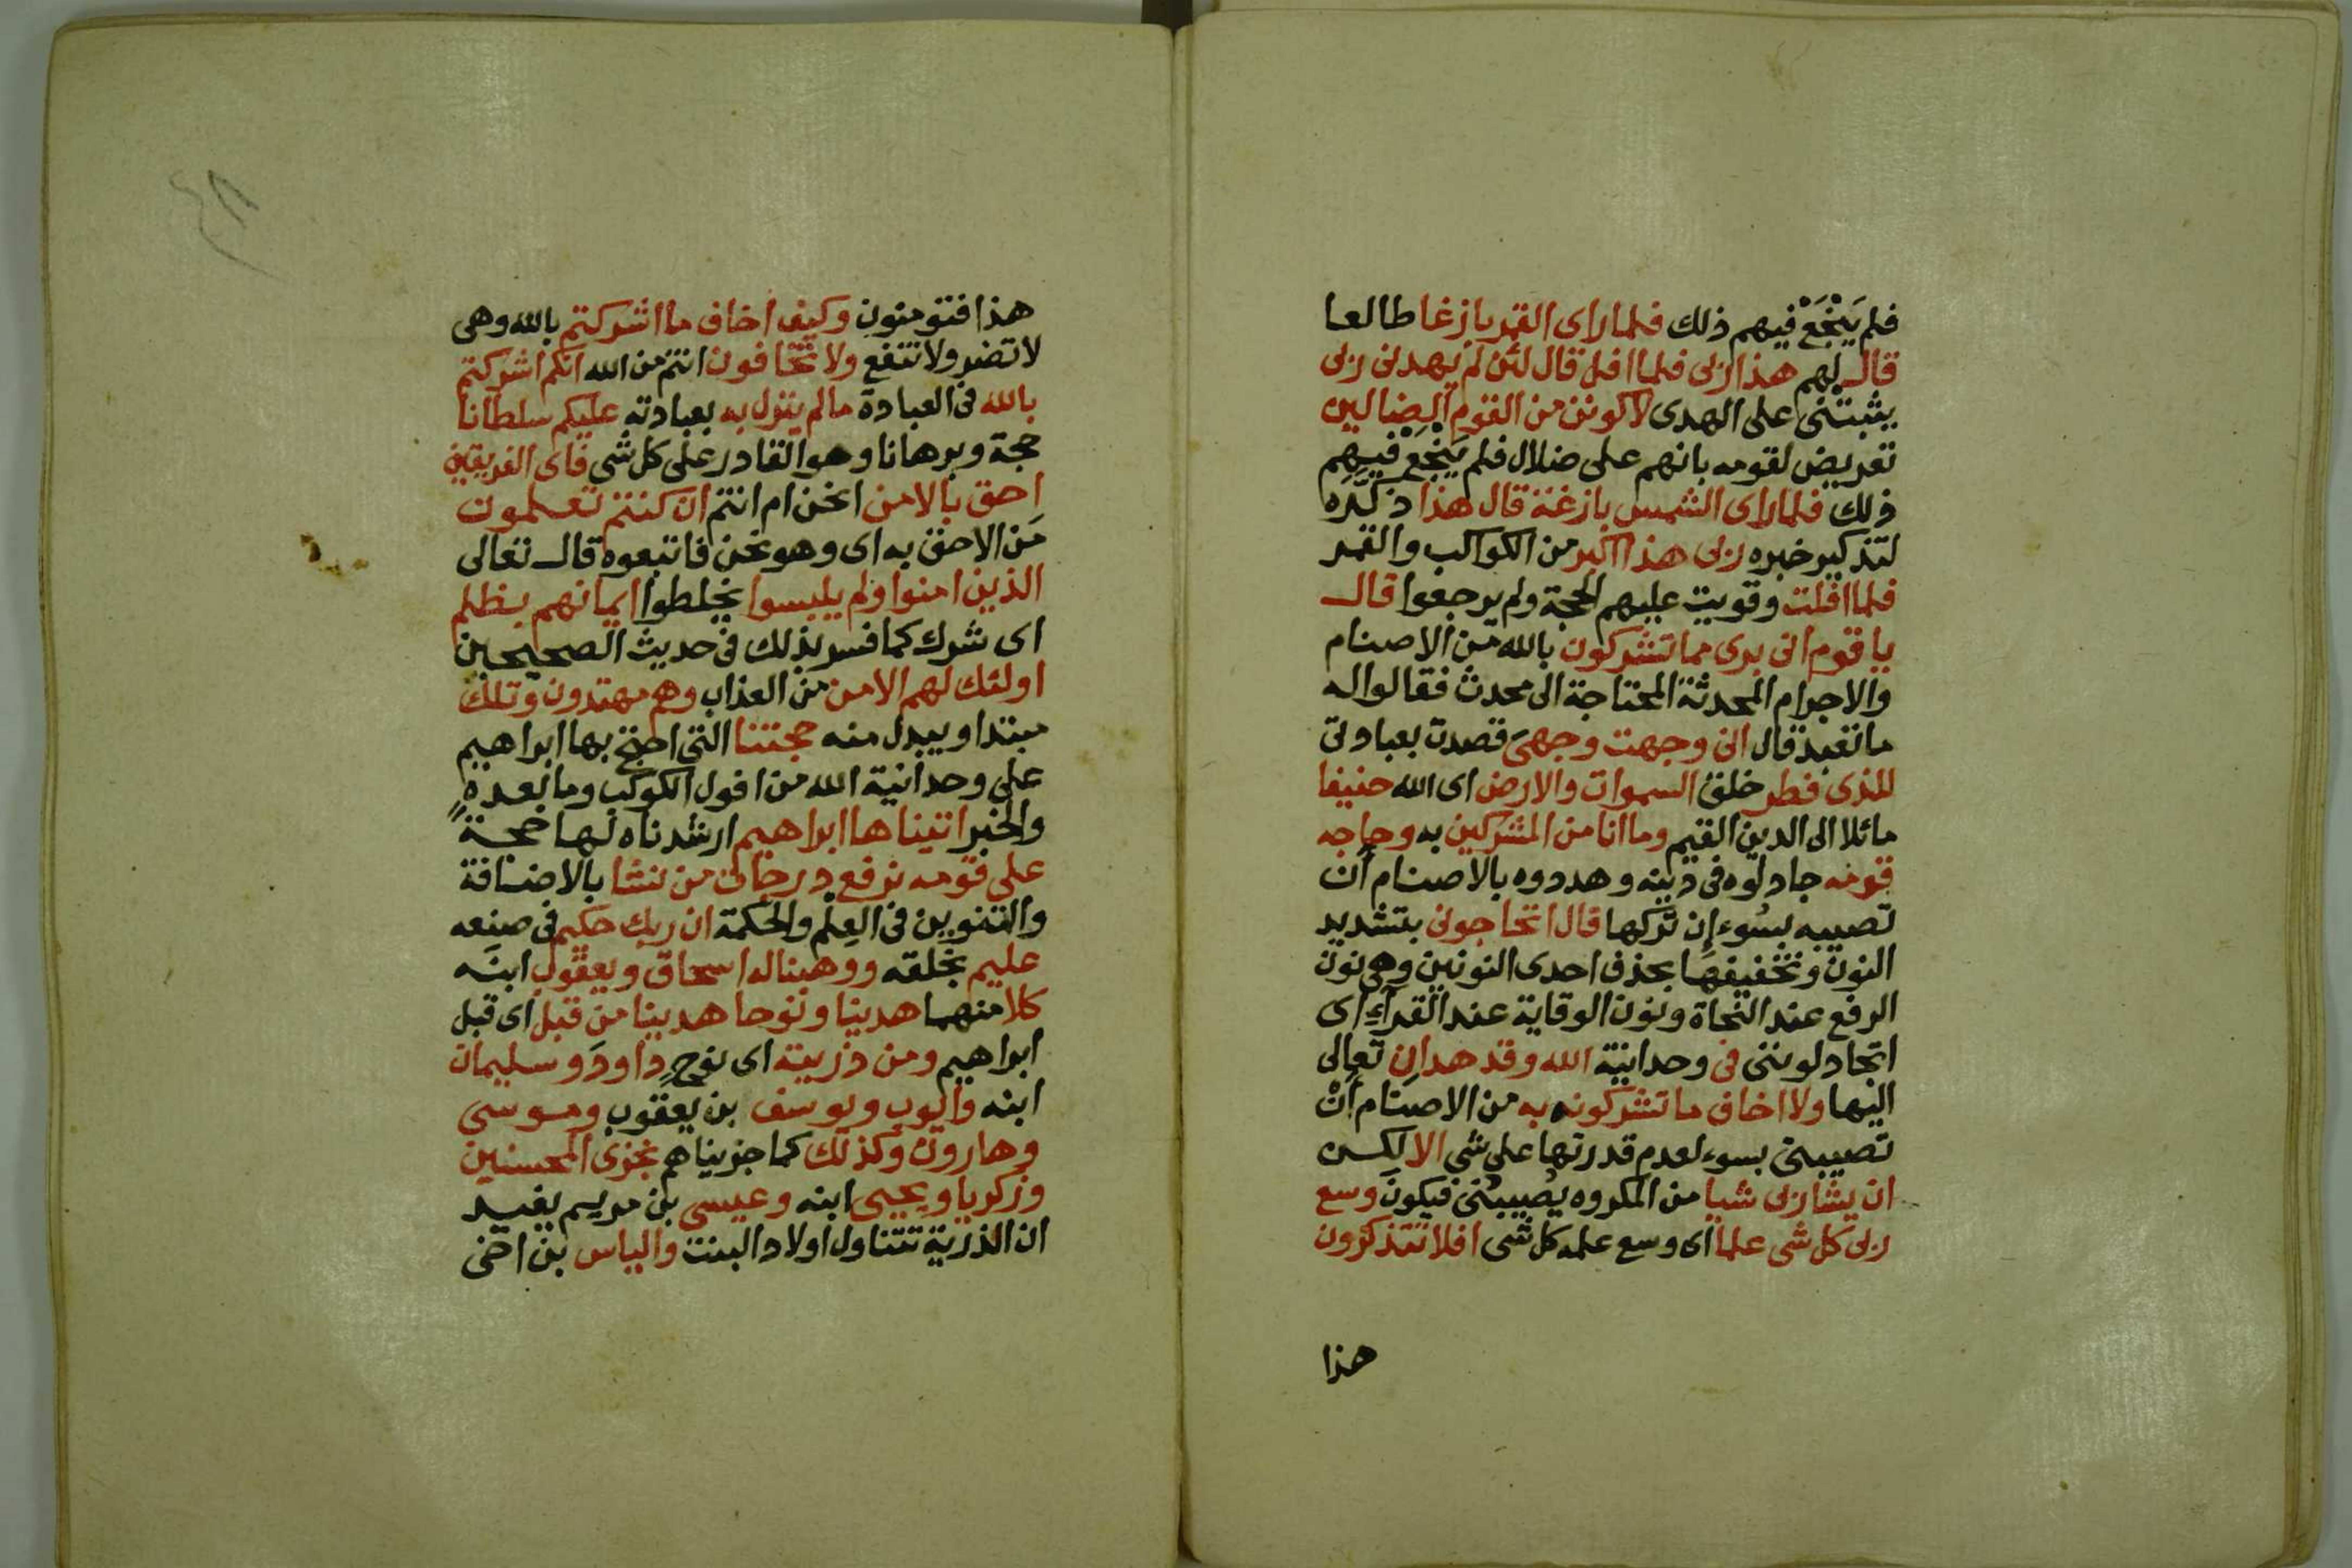 فلم يَنْجَعْ فيهم ذلك فلما راى القمر بازغا طالعا
قال لهم هذا ربى فلما افل قال لئن لم يهدنى ربى
يثبتْنى على الهدى لاكونن من القوم الضالين
تعريض لقومه بانهم على ضلال فلم يَنْجَعْ فيهم
ذلك فلما راى الشمس بازغة قال هذا ذكّره
لتذكير خبره ربى هذا اكبر من الكواكب والقمر
فلما افلت وقويت عليهم الحجة ولم يرجعوا قال
يا قوم انى برى مما تشركون بالله من الاصنام
والاجرام المحدثة المحتاجة الى محدث فقالوا له
ما تعبد قال انى وجهت وجهىَ قصدت بعبادتى
للذى فطر خلق السموات والارض اى الله حنيفا
مائلا الى الدين القيم وما انا من المشركين به وحاجه
قومه جادلوه فى دينه وهددوه بالاصنام ان
تصيبه بسُوء اِن تركها قال اتحاجونى بتشديد
النون وتخفيفها بحذف احدى النونين وهى نون
الرفع عند النحاة ونون الوقاية عند القراءِ اى
اتجادلوننى فى وحدانية الله وقد هدانِ تعالى
اليها ولا اخاف ما تشركونه به من الاصنام انْ
تصيبنى بسوء لعدم قدرتها على شى الا لكن
ان يشا ربى شيا من المكروه يُصيبُنى فيكونَ وسع
ربى كل شى علما اى وسع علمه كل شى افلا تتذكرون
هذا
هذا فتومنون وكيف اخاف ما اشركتم بالله وهى
لا تضر ولا تنفع ولا تخافون انتم من الله انكم اشركتم
بالله فى العبادة ما لم ينزل به بعبادته عليكم سلطانا
حجة وبرهانا وهو القادر على كل شى فاى الفريقين
احق بالامن انحن ام انتم ان كنتم تعلمون
مَن الاحق به اى وهو نحن فاتبعوه قال تعالى
الذين امنوا ولم يلبسوا يخلطوا ايمانهم بظلم
اى شرك كما فسر بذلك فى حديث الصحيحين
اولئك لهم الامن من العذاب وهم مهتدون وتلك
مبتدا ويبدل منه حجتنا التى احتج بها ابراهيم
على وحدانية الله من افول الكوكب وما بعده
والخبر اتيناها ابراهيم ارشدناه لها حجةً
على قومه نرفع درجات من نشا بالاضافة
والتنوين فى العِلم والحكمة ان ربك حكيم فى صنعه
عليم بخلقه ووهبنا له اسحاق ويعقوب ابنَه
كلا منهما هدينا ونوحا هدينا من قبل اى قبل
ابراهيم ومن ذريته اى نوحٍ داودَ وسليمان
ابنه وايوب ويوسف بن يعقوب وموسى
وهارون وكذلك كما جزيناهم نجزى المحسنين
وزكريا ويحيى ابنه وعيسى بن مريم يفيد
ان الذرية تتناول اولاد البنت والياس بن اخى